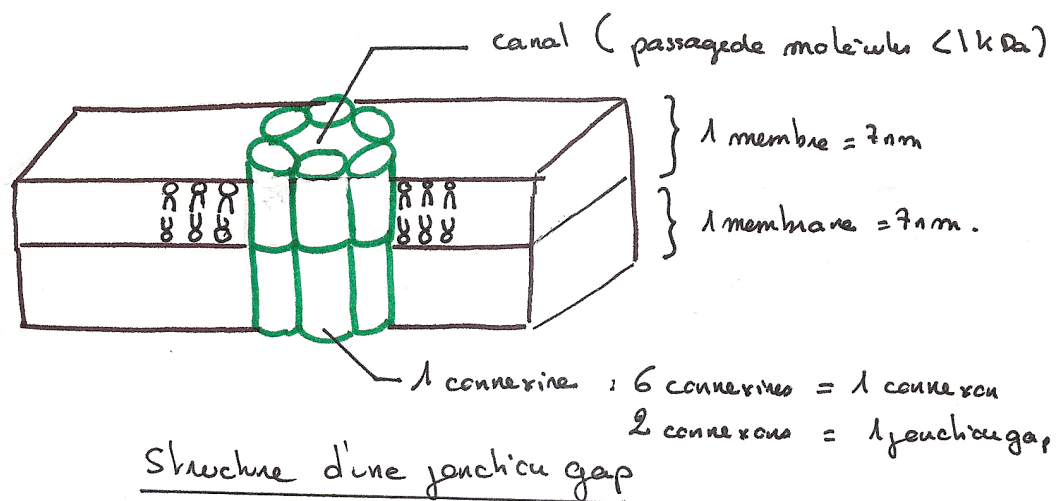 canal ( passage de molécules < 1 kDa)
1 membre = 7nm
1 membrane = 7nm.
1 connexine : 6 connexines = 1 connexon
2 connexons = 1 jonction gap
Structure d'une jonction gap